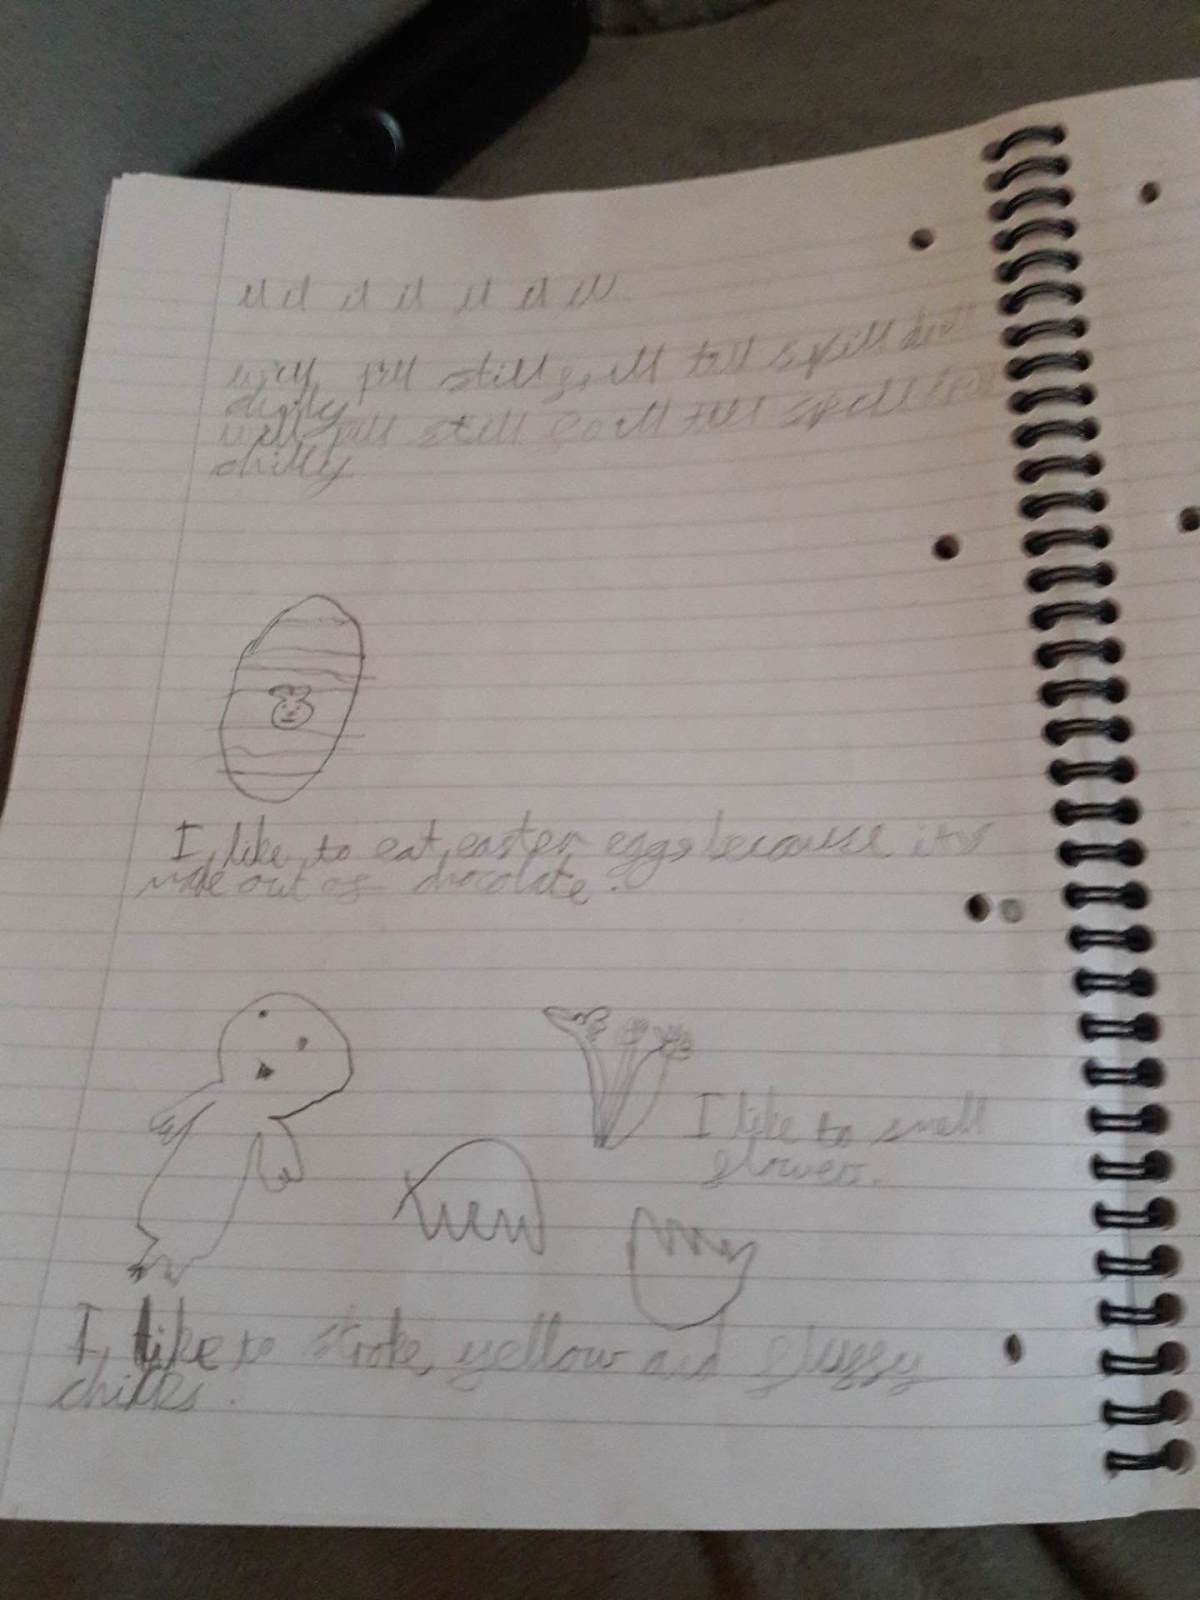 ll il il il il il ill
will pill still grill till spill drill
chilly
will pill still grill till spill
chilly
I like to eat easter eggs because its
made out of chocolate.
I like to smell
flowers.
I like to stroke yellow and fluffy
chicks.